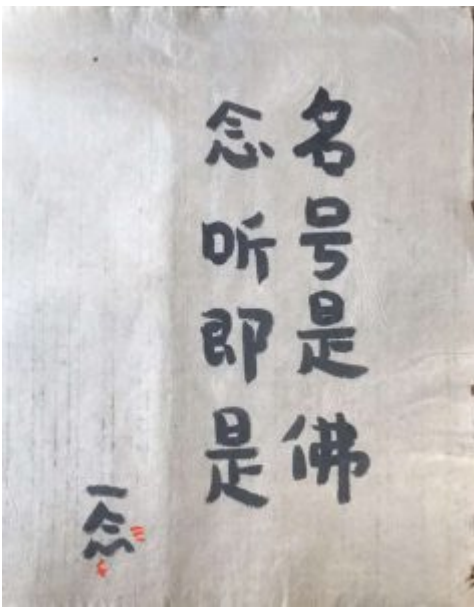 名号是佛
念听即是
一念